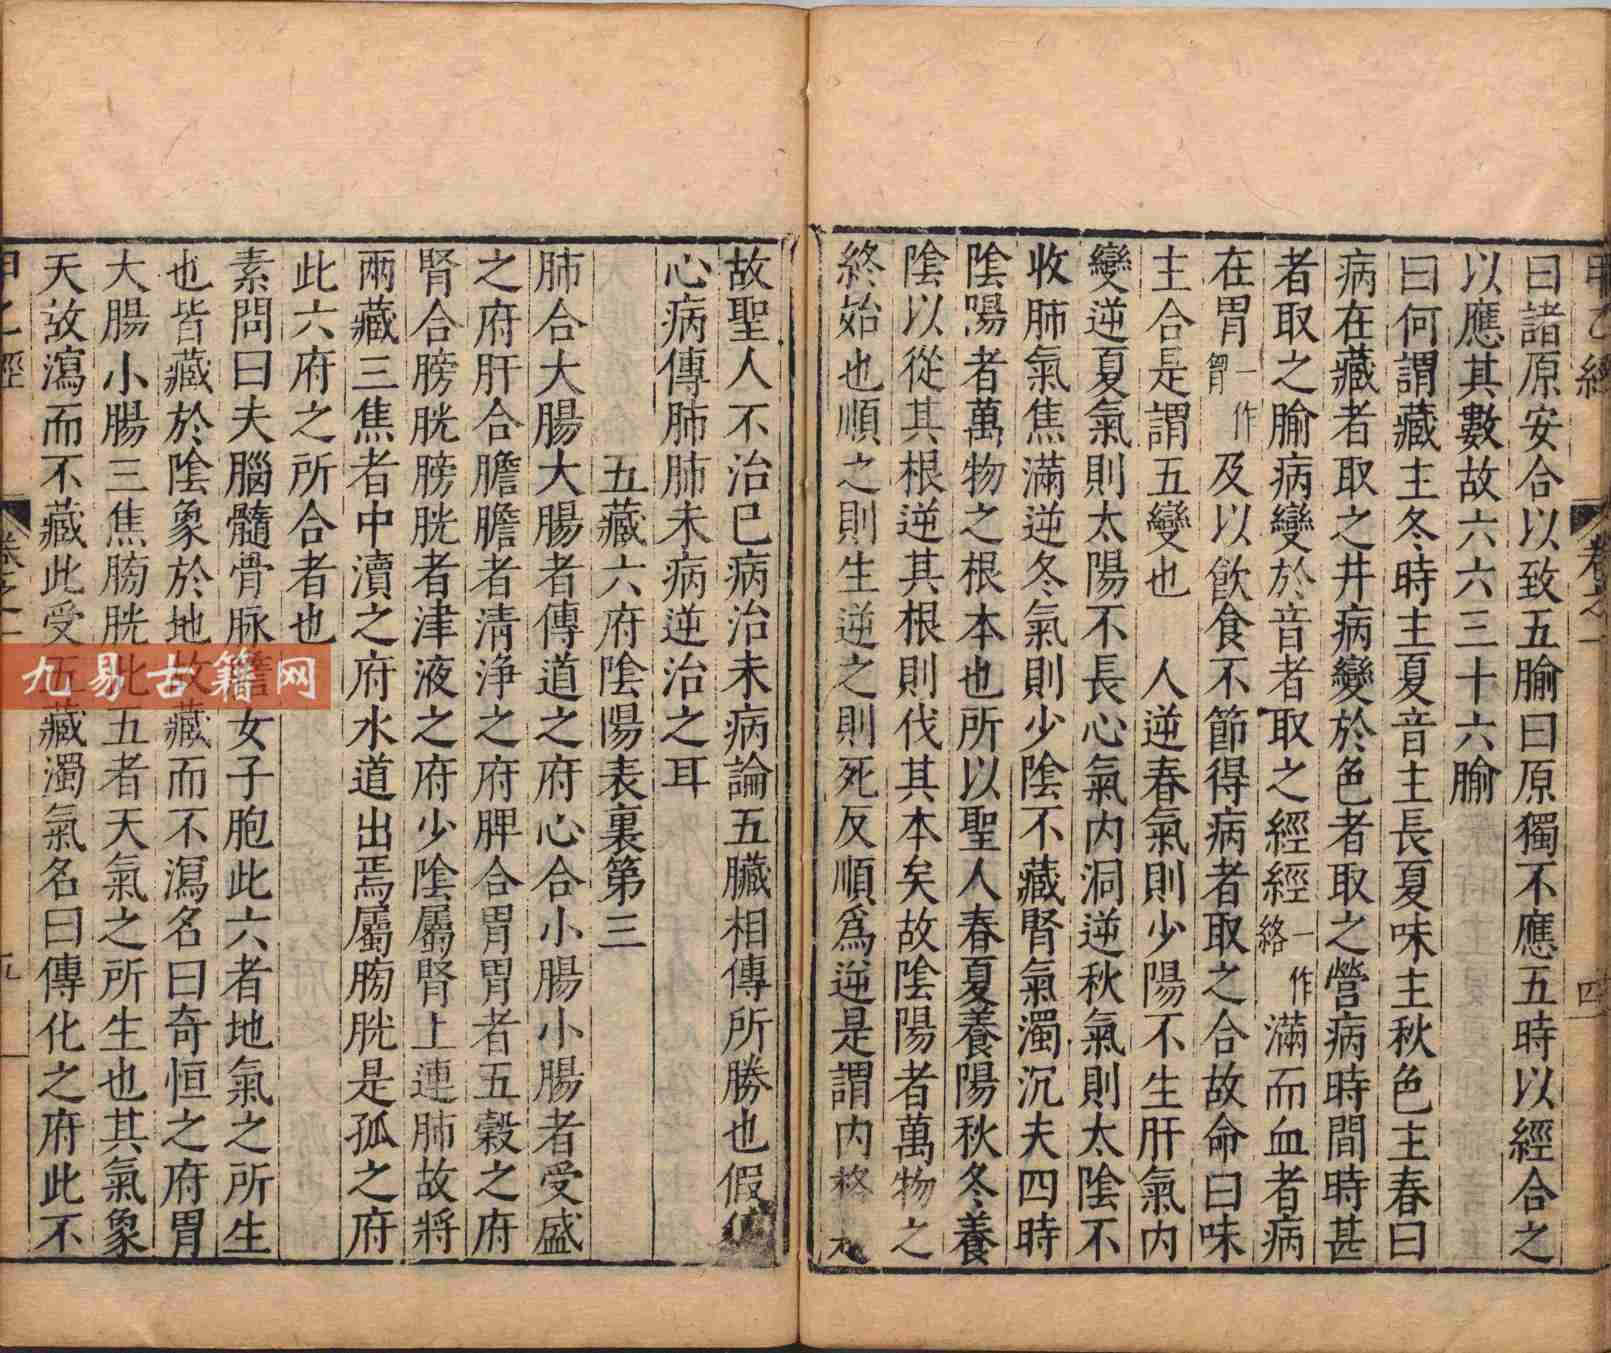 甲乙經 卷之一 四
曰諸原安合以致五腧曰原獨不應五時以經合之
以應其數故六六三十六腧
曰何謂藏主冬時主夏音主長夏味主秋色主春曰
病在藏者取之井病變於色者取之營病時間時甚
者取之腧病變於音者取之經經一作絡滿而血者病
在胃一作胷及以飲食不節得病者取之合故命曰味
主合是謂五變也 人逆春氣則少陽不生肝氣内
變逆夏氣則太陽不長心氣内洞逆秋氣則太陰不
收肺氣焦滿逆冬氣則少陰不藏腎氣濁沉夫四時
陰陽者萬物之根本也所以聖人春夏養陽秋冬養
陰以從其根逆其根則伐其本矣故陰陽者萬物之
終始也順之則生逆之則死反順爲逆是謂内格
故聖人不治已病治未病論五臟相傳所勝也假
心病傳肺肺未病逆治之耳
五藏六府陰陽表裏第三
肺合大腸大腸者傳道之府心合小腸小腸者受盛
之府肝合膽膽者清淨之府脾合胃胃者五穀之府
腎合膀胱膀胱者津液之府少陰屬腎上連肺故將
兩藏三焦者中瀆之府水道出焉屬膀胱是孤之府
此六府之所合者也
素問曰夫腦髓骨脉膽女子胞此六者地氣之所生
也皆藏於陰象於地故藏而不瀉名曰奇恒之府胃
大腸小腸三焦膀胱此五者天氣之所生也其氣象
天故瀉而不藏此受五藏濁氣名曰傳化之府此不
甲乙經 卷之一
九易古籍网